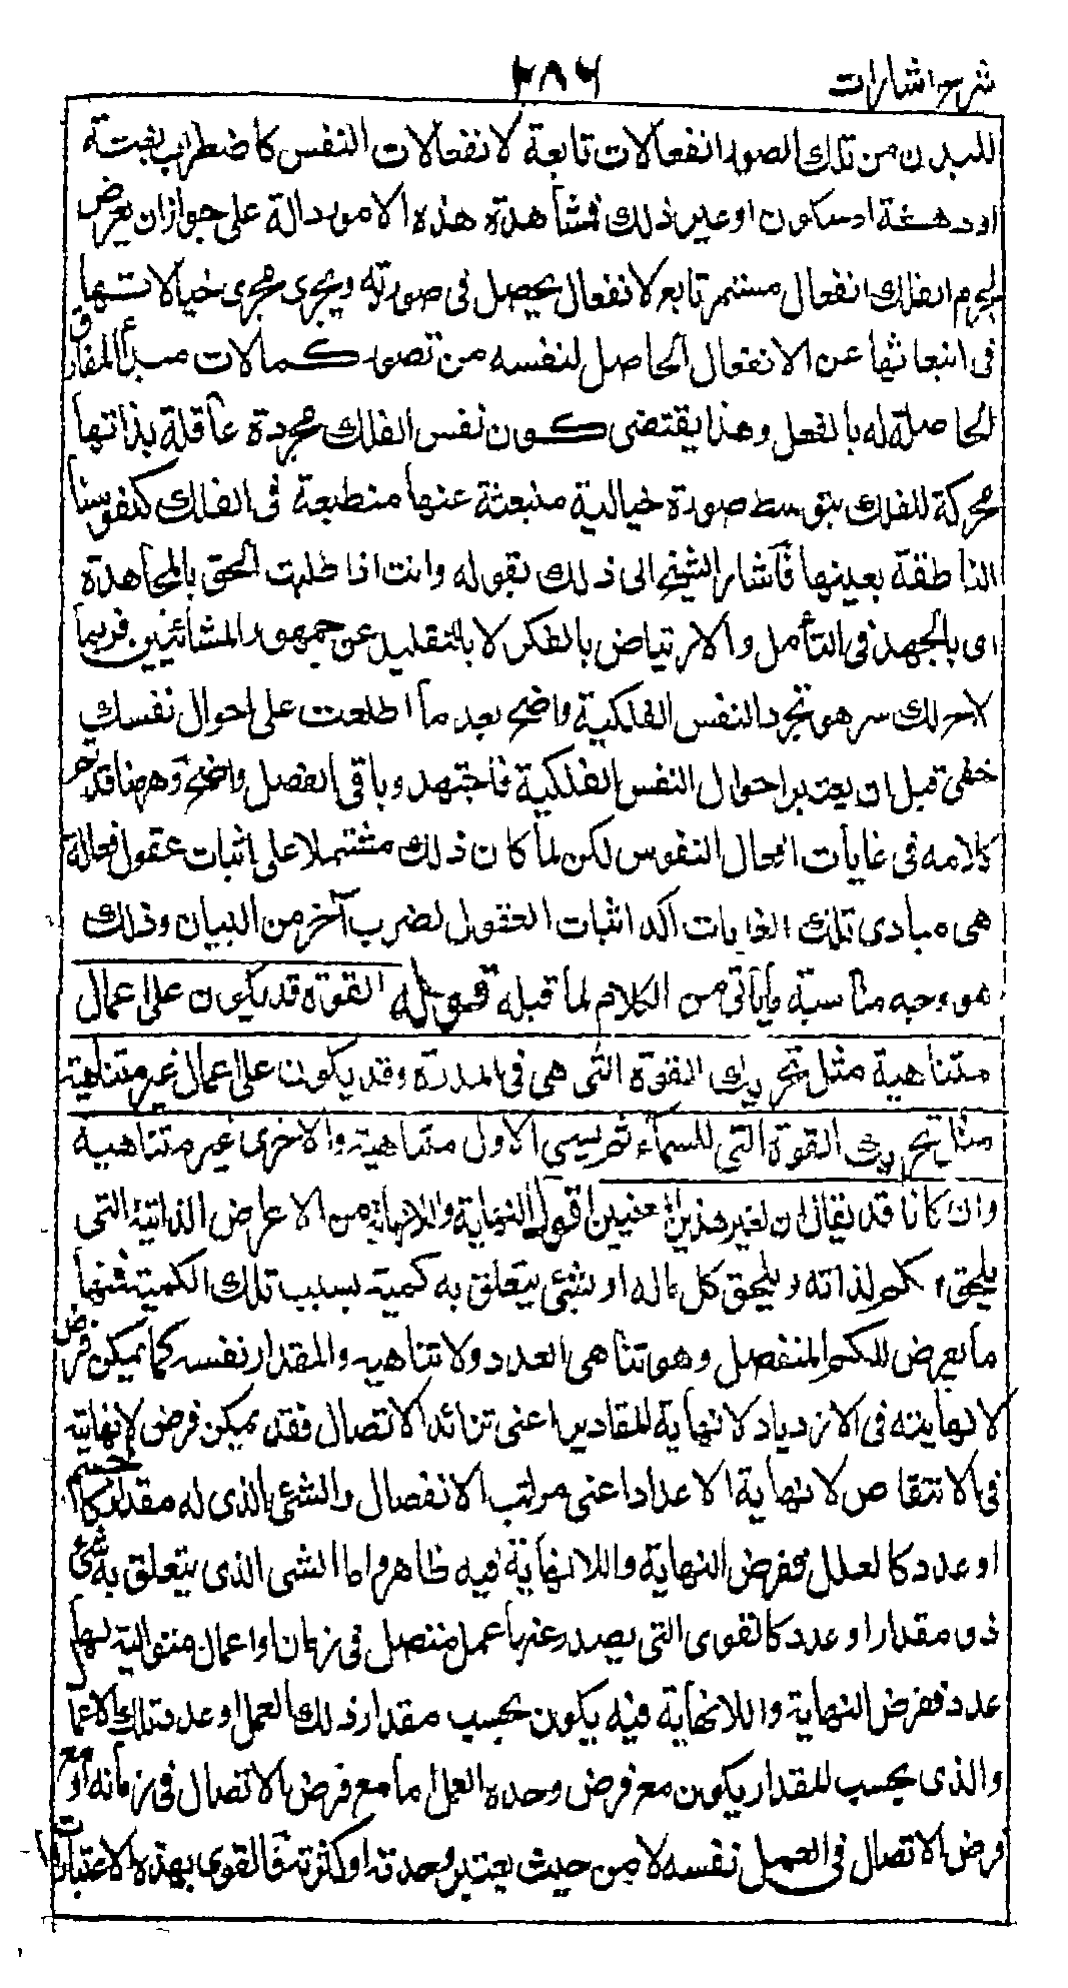 شرح اشارات
٢٨٦
للبدن من تلك الصور انفعالات تابعة لانفعالات النفس كاضطراب بغتة
او دهشة او سكون او غير ذلك فمشاهدة هذه الامور دالة على جواز ان يعرض
لجرم الفلك انفعال مستمر تابع لانفعال يحصل فى صورته ويجرى مجرى خيالات تها
فى انبعاثها عن الانفعال الحاصل لنفسه من تصور كمالات مبدأ المفارق
الحاصلة له بالفعل وهذا يقتضى كون نفس الفلك مجردة عاقلة بذاتها
محركة للفلك بتوسط صورة خيالية منبعثة عنها منطبعة فى الفلك كنفوسنا
الناطقة بعينها فاشار الشيخ الى ذلك بقوله وانت اذا طلبت الحق بالمجاهدة
اى بالجهد فى التأمل والارتياض بالفكر لا بالتقليد عن جمهور المشائين فربما
لاح لك سر هو تجرد النفس الفلكية واضح بعد ما اطلعت على احوال نفسك
خفى قبل ان يعتبر احوال النفس الفلكية فاجتهد وباقى الفصل واضح وههنا قد تم
كلامه فى غايات افعال النفوس لكن لما كان ذلك مشتملا على اثبات عقول فعالة
هى مبادى تلك الغايات اكد اثبات العقول لضرب آخر من البيان وذلك
هو وجه مناسبة ما يأتى من الكلام لما قبله قوله القوة قد يكون على اعمال
متناهية مثل تحريك القوة التى هى فى المدرة وقد يكون على اعمال غير متناهية
مثل تحريك القوة التى للسماء ثم يسمى الاول متناهية والاخرى غير متناهية
وان كانا قد يقال ان لغير هذين المعنيين اقول النهاية واللانهاية من الاعراض الذاتية التى
يلحق الكم لذاته ويلحق كل ماله او لشئ يتعلق به كمية بسبب تلك الكمية فمنها
ما يعرض للكم المنفصل وهو تناهى العدد ولا تناهيه والمقدار نفسه كما يمكن فرض
لا نهايته فى الازدياد لانهاية المقادير اعنى تزائد الاتصال فقد يمكن فرض لانهايته
فى الانتقاص لانهاية الاعداد اعنى مراتب الانفصال والشئ الذى له مقدار كالجسم
او عدد كالعلل ففرض النهاية واللانهاية فيه ظاهر واما الشى الذى يتعلق به شئ
ذو مقدار او عدد كالقوى التى يصدر عنها عمل متصل فى زمان او اعمال متوالية لها
عدد ففرض النهاية واللانهاية فيه يكون بحسب مقدار ذلك العمل او عدد تلك الاعما
والذى بحسب المقدار يكون مع فرض وحدة العمل اما مع فرض الاتصال فى زمانه او مع
فرض الاتصال فى العمل نفسه لا من حيث يعتبر وحدته او كثرته فالقوى بهذه الاعتبارات